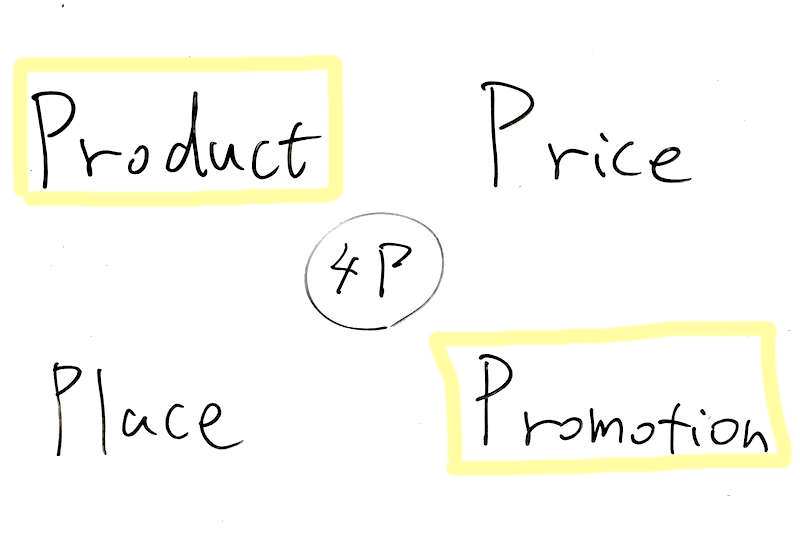 Product
Price
4P
Place
Promotion